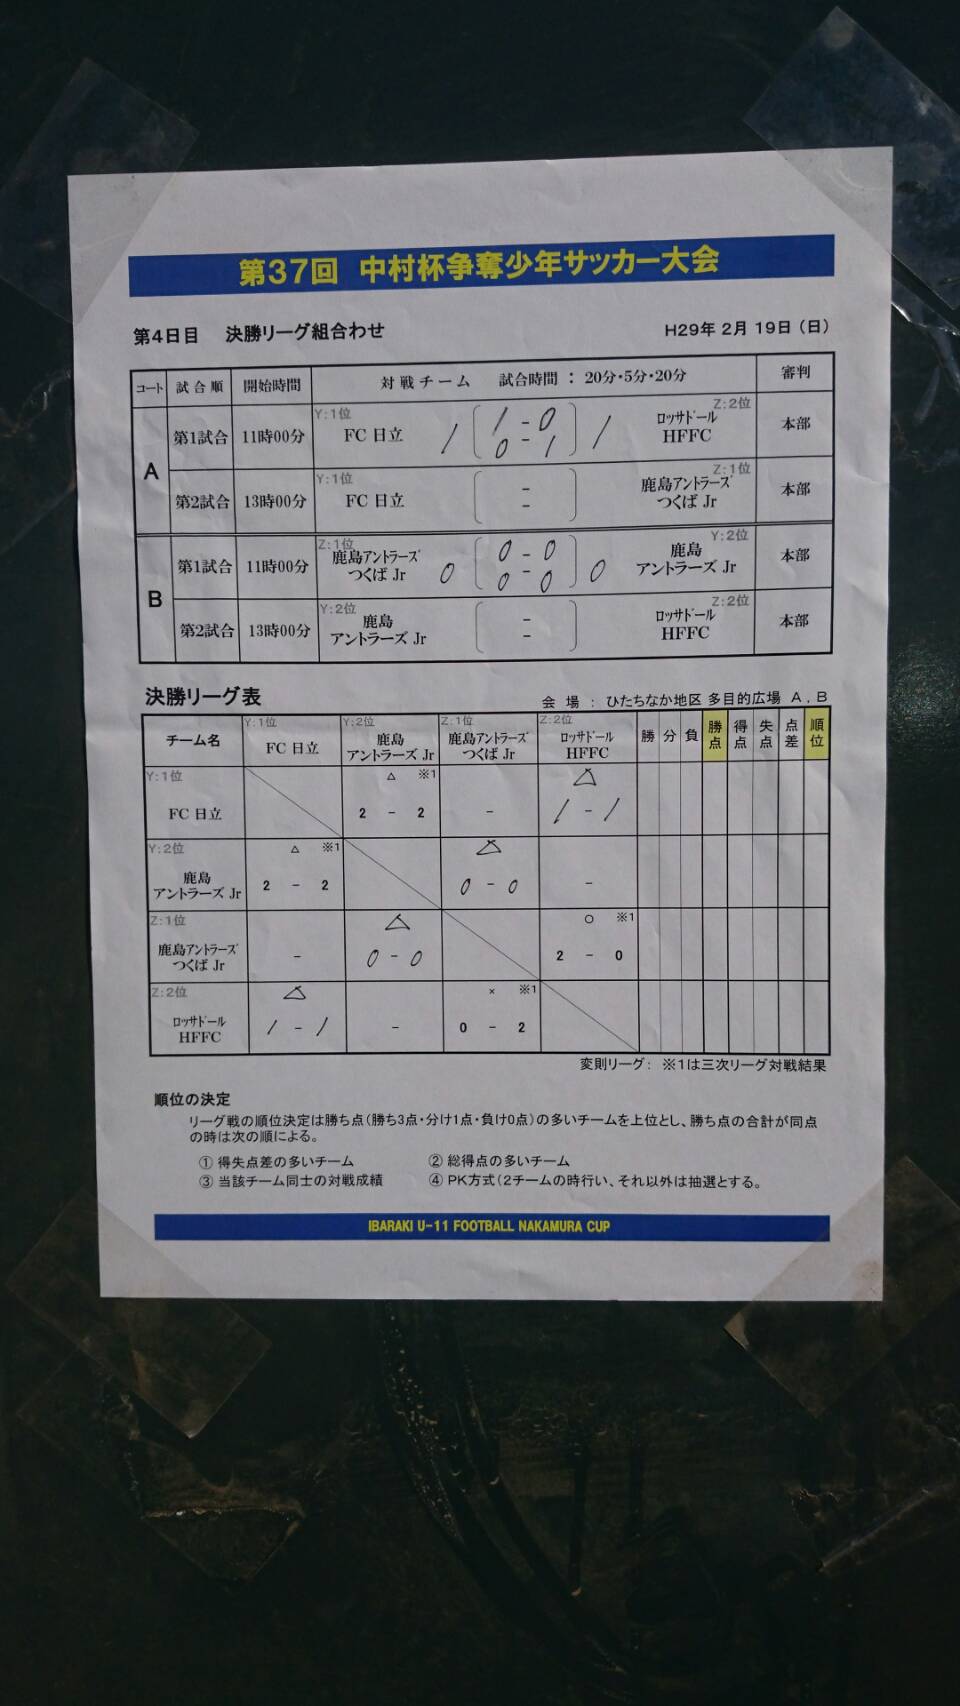 第37回 中村杯争奪少年サッカー大会
第4日目 決勝リーグ組合わせ H29年 2月 19日 (日)
コート 試合順 開始時間 対戦チーム 試合時間 : 20分・5分・20分 審判
A
第1試合 11時00分 Y:1位 FC 日立 1 1 - 0 0 - 1 1 Z:2位 ロッサドール HFFC 本部
第2試合 13時00分 Y:1位 FC 日立 - - Z:1位 鹿島アントラーズ つくば Jr 本部
B
第1試合 11時00分 Z:1位 鹿島アントラーズ つくば Jr 0 0 - 0 0 - 0 0 Y:2位 鹿島 アントラーズ Jr 本部
第2試合 13時00分 Y:2位 鹿島 アントラーズ Jr - - Z:2位 ロッサドール HFFC 本部
決勝リーグ表 会 場 : ひたちなか地区 多目的広場 A , B
チーム名 Y:1位 FC 日立 Y:2位 鹿島 アントラーズ Jr Z:1位 鹿島アントラーズ つくば Jr Z:2位 ロッサドール HFFC 勝 分 負 勝点 得点 失点 点差 順位
Y:1位 FC 日立 △ ※1 2 - 2 - △ 1 - 1
Y:2位 鹿島 アントラーズ Jr △ ※1 2 - 2 △ 0 - 0 -
Z:1位 鹿島アントラーズ つくば Jr - △ 0 - 0 ○ ※1 2 - 0
Z:2位 ロッサドール HFFC △ 1 - 1 - × ※1 0 - 2
変則リーグ: ※1は三次リーグ対戦結果
順位の決定
リーグ戦の順位決定は勝ち点(勝ち3点・分け1点・負け0点)の多いチームを上位とし、勝ち点の合計が同点
の時は次の順による。
① 得失点差の多いチーム ② 総得点の多いチーム
③ 当該チーム同士の対戦成績 ④ PK方式(2チームの時行い、それ以外は抽選とする。
IBARAKI U-11 FOOTBALL NAKAMURA CUP